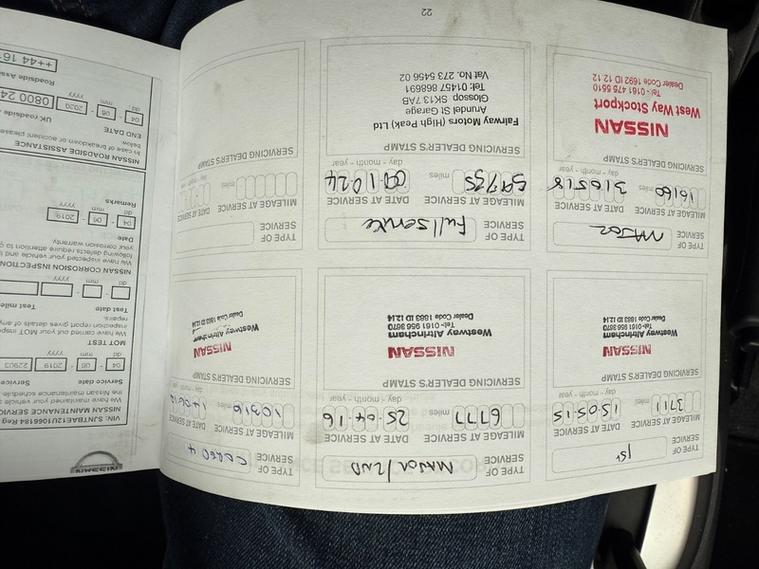 TYPE OF
SERVICE
1st
MILEAGE AT SERVICE
DATE AT SERVICE
3711
miles
15-05-15
day - month - year
SERVICING DEALER'S STAMP
NISSAN
Westway Altrincham
Tel:- 0161 956 3870
Dealer Code 1683 ID 12.14
TYPE OF
SERVICE
MAJOR/2ND
MILEAGE AT SERVICE
DATE AT SERVICE
6777
miles
25-04-16
day - month - year
SERVICING DEALER'S STAMP
NISSAN
Westway Altrincham
Tel:- 0161 956 3870
Dealer Code 1683 ID 12.14
TYPE OF
SERVICE
MILEAGE AT SERVICE
DATE AT SERVICE
miles
day - month - year
SERVICING DEALER'S STAMP
NISSAN
Westway Altrincham
Dealer Code 1683 ID 12.14
TYPE OF
SERVICE
MAJOR
MILEAGE AT SERVICE
DATE AT SERVICE
16160
miles
31 05 18
day - month - year
SERVICING DEALER'S STAMP
NISSAN
West Way Stockport
Tel:- 0161 475 5510
Dealer Code 1692 ID 12.12
TYPE OF
SERVICE
Full service
MILEAGE AT SERVICE
DATE AT SERVICE
59735
miles
09-10-24
day - month - year
SERVICING DEALER'S STAMP
Fairway Motors (High Peak) Ltd
Arundel St Garage
Glossop SK13 7AB
Tel: 01457 868691
Vat No. 273 5456 02
TYPE OF
SERVICE
MILEAGE AT SERVICE
DATE AT SERVICE
miles
day - month - year
SERVICING DEALER'S STAMP
22
NISSAN
VIN: SJNTBAE12U1066194 Reg
NISSAN MAINTENANCE SERVICE
We have maintained your vehicle
the Nissan maintenance schedule
Service date
04 - 06 - 2019
22903
dd mm yyyy
MOT TEST
We have carried out your MOT
inspection report gives details of any
repairs.
Test date
Test mile
dd mm yyyy
NISSAN CORROSION INSPECTION
We have inspected your vehicle and
following defects require attention to
your corrosion warranty.
Date
04 - 06 - 2019
dd mm yyyy
Remarks
NISSAN ROADSIDE ASSISTANCE
In case of breakdown or accident please
below.
END DATE
UK roadside
04 - 06 - 2020
0800 24
dd mm yyyy
Roadside Assi
++44 16